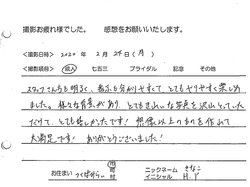 撮影お疲れ様でした。 感想をお願いいたします。
撮影日時 2020 年 2月 24日(月)
撮影項目 成人 七五三 ブライダル 記念 その他
スタッフさんも明るく、指示も分かりやすくて、とてもやりやすく楽しめ
ました。様々な背景があり、とてもきれいな写真を沢山とっていた
だけて、とても嬉しかったです! 想像以上のものを作れて
大満足です! ありがとうございました!
お住まい つくばみらい 市 ニックネーム きなこ
イニシャル H.Y